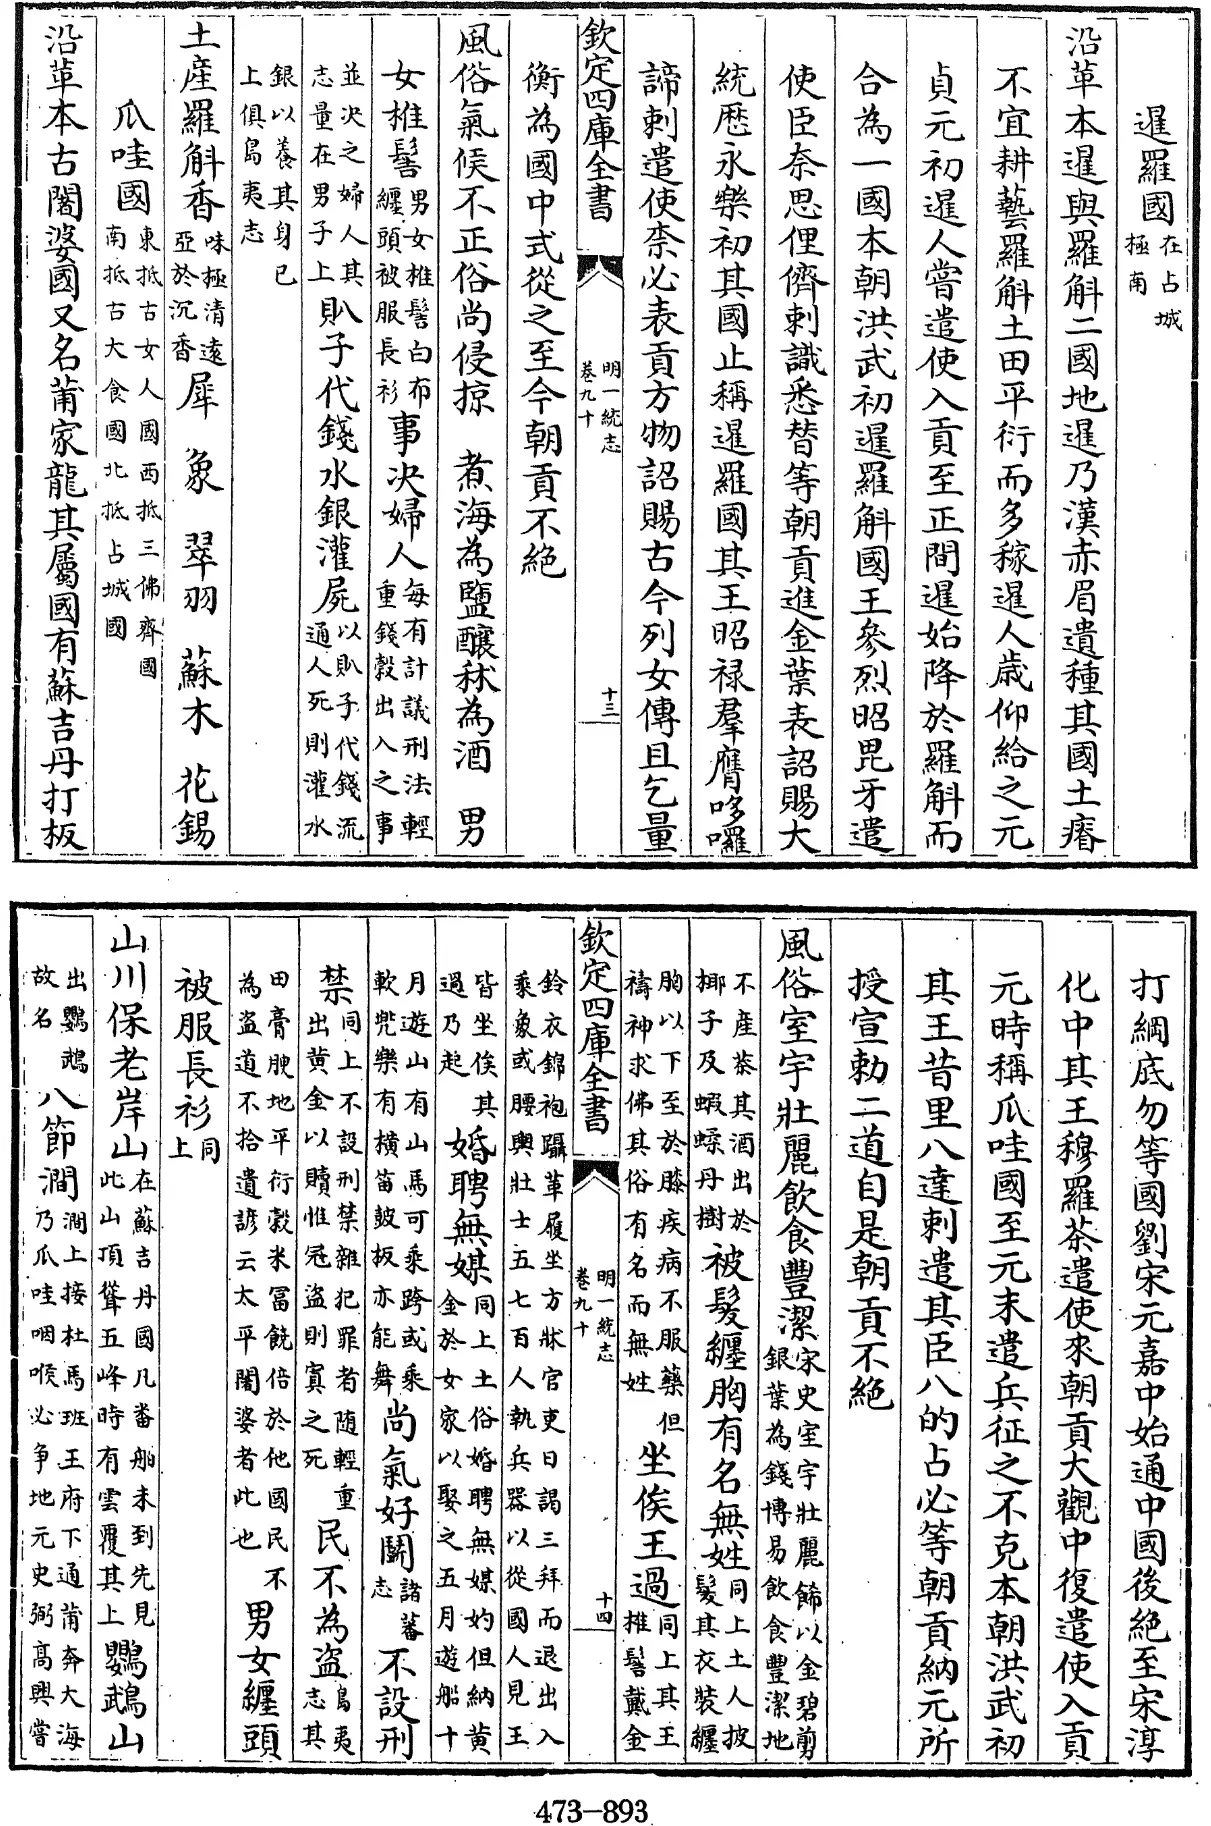 暹羅國在占城極南
沿革本暹與羅斛二國地暹乃漢赤眉遺種其國土瘠
不宜耕藝羅斛土田平衍而多稼暹人歲仰給之元元
貞元初暹人嘗遣使入貢至正間暹始降於羅斛而
合為一國本朝洪武初暹羅斛國王參烈昭毘牙遣
使臣奈思俚儕剌識悉替等朝貢進金葉表詔賜大
統歷永樂初其國止稱暹羅國其王昭禄羣膺哆囉
諦剌遣使柰必表貢方物詔賜古今列女傳且乞量
欽定四庫全書
明一統志
卷九十
十三
衡為國中式從之至今朝貢不絶
風俗氣候不正俗尚侵掠 煮海為鹽釀秫為酒 男
女椎髻男女椎髻白布纏頭被服長衫事决婦人每有計議刑法輕重錢穀出入之事
並决之婦人其志量在男子上 𧴩子代錢水銀灌屍以𧴩子代錢流通人死則灌水
銀以養其身已上俱島夷志
土産羅斛香味極清遠亞於沉香犀 象 翠羽 蘇木 花錫
瓜哇國東抵古女人國西抵三佛齊國南抵古大食國北抵占城國
沿革本古闍婆國又名莆家龍其屬國有蘇吉丹打板
打綱底勿等國劉宋元嘉中始通中國後絶至宋淳
化中其王穆羅茶遣使來朝貢大觀中復遣使入貢
元時稱瓜哇國至元末遣兵征之不克本朝洪武初
其王昔里八達剌遣其臣八的占必等朝貢納元所
授宣勅二道自是朝貢不絶
風俗室宇壯麗飲食豐潔宋史室宇壯麗飾以金碧剪銀葉為錢博易飲食豐潔地
不産茶其酒出於椰子及蝦蝚丹樹被髮纏胸有名無姓同上土人披髮其衣裝纏
胸以下至於膝疾病不服藥但禱神求佛其俗有名而無姓坐俟王過同上其王椎髻戴金
欽定四庫全書
明一統志
卷九十
十四
鈴衣錦袍躡革履坐方牀官吏日謁三拜而退出入乘象或腰輿壯士五七百人執兵器以從國人見王
皆坐俟其過乃起 婚聘無媒同上土俗婚聘無媒妁但納黄金於女家以娶之五月遊船十
月遊山有山馬可乘跨或乘軟兜樂有橫笛皷板亦能舞尚氣好鬭諸蕃志不設刑
禁同上不設刑禁雜犯罪者随輕重出黄金以贖惟冦盗則寘之死民不為盗島夷志其
田膏腴地平衍穀米冨饒倍於他國民不為盗道不拾遺諺云太平闍婆者此也男女纏頭
被服長衫同上
山川保老岸山在蘇吉丹國凡番舶未到先見此山頂聳五峰時有雲覆其上鸚鵡山
出鸚鵡故名 八節澗澗上接杜馬班王府下通莆奔大海乃瓜哇咽喉必争地元史弼高興嘗
473-893